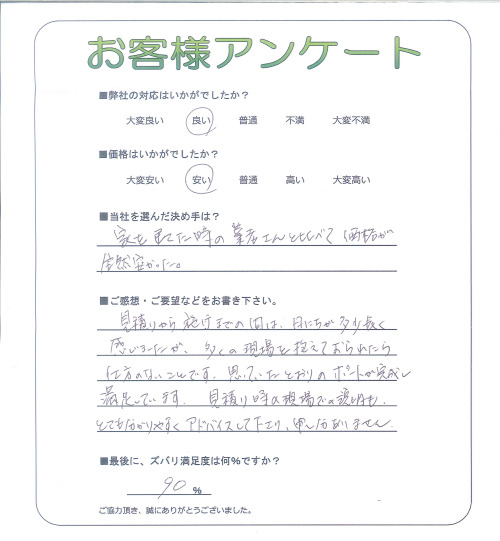 お客様アンケート
■弊社の対応はいかがでしたか?
大変良い 良い 普通 不満 大変不満
■価格はいかがでしたか?
大変安い 安い 普通 高い 大変高い
■当社を選んだ決め手は?
家を建てた時の業者さんと比べて価格が
全然安かった。
■ご感想・ご要望などをお書き下さい。
見積りから までの間は、日にちが多少長く
感じましたが、多くの現場を抱えておられたら
仕方のないことです。思っていたとおりの ポートが完成し
満足しています。見積り時の現場での説明も、
とても分かりやすくアドバイスして下さり、申し分ありません。
■最後に、ズバリ満足度は何%ですか?
90 %
ご協力頂き、誠にありがとうございました。